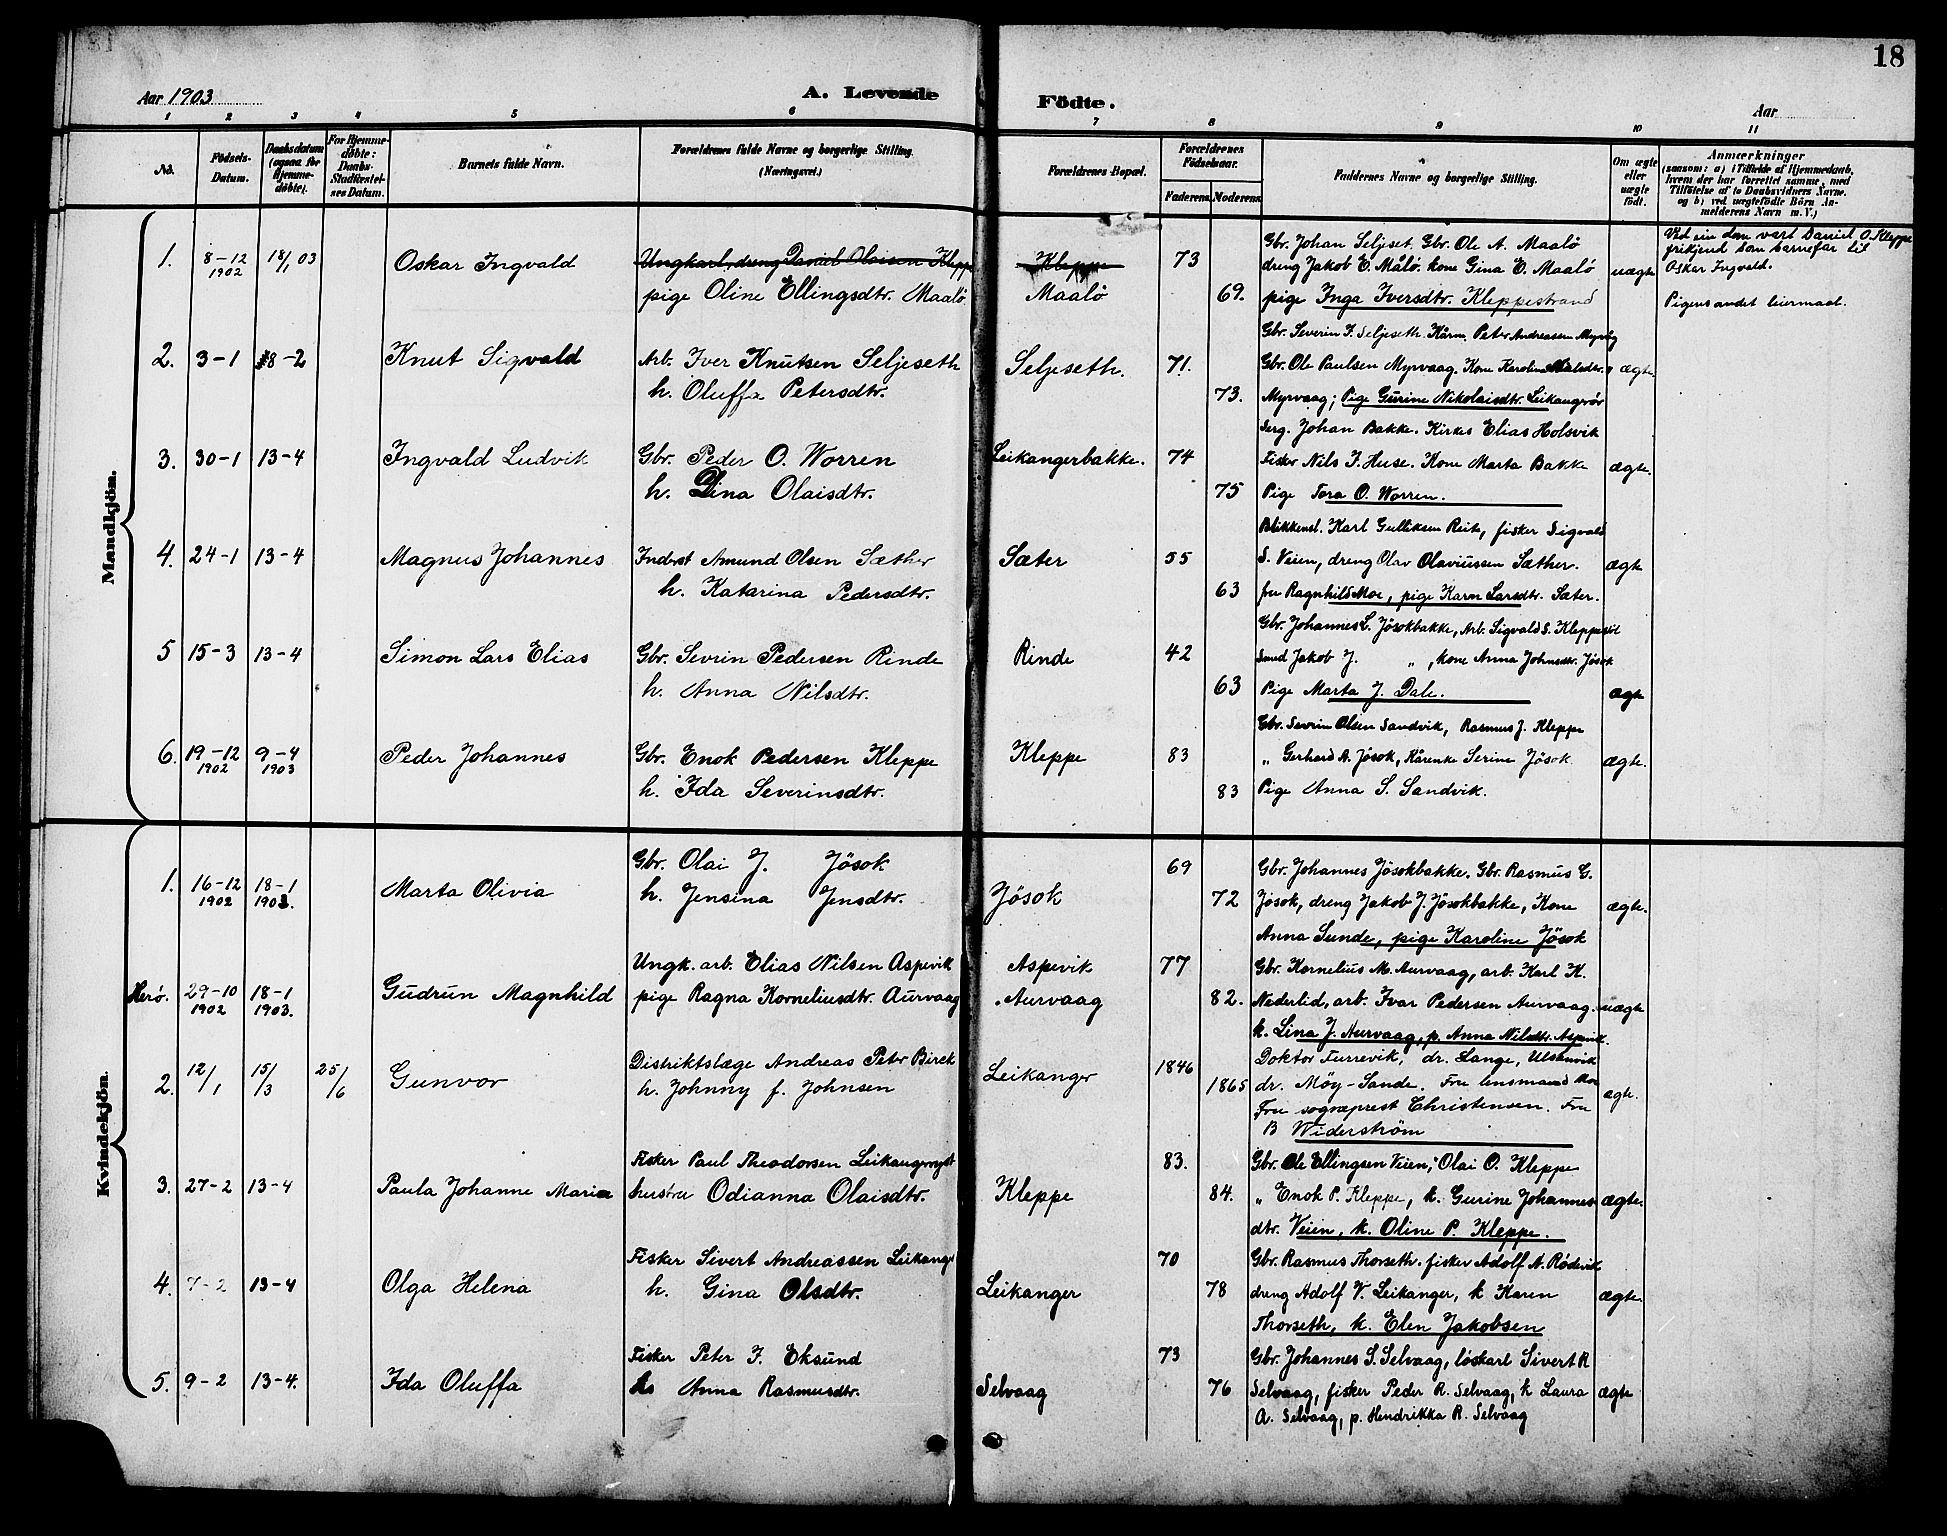 18
Aar 1903
A. Levende
Födte.
Aar
1 2 3 4 5 6 7 8 9 10 11
No.
Födsels-Datum.
Daabsdatum (ogsaa for Hjemmedøbte).
For Hjemmedøbte: Daabs-Stadfæstelses Datum.
Barnets fulde Navn.
Forældrenes fulde Navne og borgerlige Stilling. (Næringsvei.)
Forældrenes Bopæl.
Forældrenes Födselsaar.
Faderens. Moderens.
Faddernes Navne og borgerlige Stilling.
Om ægte eller uægte født.
Anmærkninger
(saasom: a) i Tilfælde af Hjemmedaab,
hvem der har forrettet samme, med
Tilföielse af to Daabsvidners Navne.
og b) ved uægtefödte Börn An-
melderens Navn m. V.)
Mandkjön.
1. 8-12 1902 18/1 03 Oskar Ingvald
Ungkarl, dreng Daniel Olaisen Kleppe
pige Oline Ellingsdtr. Maalö
Kleppe
Maalö
73
69.
Gbr. Johan Seljset. Gbr. Ole A. Maalö
dreng Jakob E. Målö. kone Gina E. Maalö
pige Inga Iversdtr. Kleppestrand
uægte
Ved ein dom vart Daniel O. Kleppe
frikjend som barnefar til
Oskar Ingvald.
Pigens andet leiermaal.
2. 3-1 8-2 Knut Sigvald
Arb. Iver Knutsen Seljeseth
h. Oluffa Petersdtr.
Seljeseth.
71.
73.
Gbr. Severin I. Seljeseth. Kårm. Peter Andreassen Myrvåg
Gbr. Ole Paulsen Myrvaag. Kone Karoline
Myrvaag; Pige Gurine Nikolaisdtr. Leikangerör
ægte.
3. 30-1 13-4 Ingvald Ludvik
Gbr. Peder O. Worren
h. Dina Olaisdtr.
Leikangerbakke.
74
75
Serg. Johan Bakke. Kirkes Elias Holsvik
Fisker Nils I. Huse. Kone Marta Bakke
Pige Tora O. Worren.
ægte.
4. 24-1 13-4 Magnus Johannes
Inderst Amund Olsen Sæther
h. Katarina Pedersdtr.
Sæter
55
63
Blikkensl. Karl Gulliksen Reite, fisker Sigvald
S. Veien, dreng Olav Olaviussen Sæther.
fru Ragnhild Moe, pige Karen Larsdtr. Sæter.
ægte
5 15-3 13-4 Simon Lars Elias
Gbr. Sevrin Pedersen Rinde
h. Anna Nilsdtr.
Rinde
42
63
Gbr. Johannes L. Jösokbakke, Arb. Sigvald S. Kleppe
Smed Jakob J. „ , kone Anna Johnsdtr. Jösok
Pige Marta J. Dale.
ægte
6. 19-12 1902 9-4 1903 Peder Johannes
Gbr. Enok Pedersen Kleppe
h. Ida Severinsdtr.
Kleppe
83
83
Gbr. Sevrin Olsen Sandvik, Rasmus J. Kleppe
„ Gerhard A. Jösok, Kårenke Serine Jösok
Pige Anna S. Sandvik.
ægte.
Kvindekjön.
1. 16-12 1902 18-1 1903. Marta Olivia
Gbr. Olai J. Jösok
h. Jensina Jensdtr.
Jösok
69
72
Gbr. Johannes Jösokbakke. Gbr. Rasmus G.
Jösok, dreng Jakob J. Jösokbakke, Kone
Anna Sunde, pige Karoline Jösok
ægte.
Herö. 29-10 1902 18-1 1903. Gudrun Magnhild
Ungk. arb. Elias Nilsen Aspevik
pige Ragna Korneliusdtr. Aurvaag
Aspevik
Aurvaag
77
82.
Gbr. Kornelius M. Aurvaag, arb. Karl K.
Nederlid, arb. Ivar Pedersen Aurvaag.
k. Lina J. Aurvaag, p. Anna Nilsdtr. Aspevik.
uægte
2. 12/1 15/3 25/6 Gunvor
Distriktslæge Andreas Peter Birch
h. Johnny f. Johnsen
Leikanger
1846
1865
Doktor Furrevik, dr. Lange, Ulstenvik
dr. Möy-Sande. Fru lensmand Moe
Fru sogneprest Christensen. Fru
B Widerström
ægte.
3. 27-2 13-4 Paula Johanne Marie
Fisker Paul Theodorsen Leikanger
hustru Odianna Olaisdtr.
Kleppe
83.
84.
Gbr. Ole Ellingsen Veien; Olai O. Kleppe
„ Enok P. Kleppe, k. Gurine Johannes
dtr. Veien, k. Oline P. Kleppe.
ægte.
4. 7-2 13-4 Olga Helena
Fisker Sivert Andreassen Leikanger
h. Gina Olsdtr.
Leikanger
70
78
Gbr. Rasmus Thorseth. fisker Adolf A. Rödevik
dreng Adolf V. Leikanger, k Karen
Thorseth, k. Elen Jakobsen
ægte.
5. 9-2 13-4. Ida Oluffa
Fisker Peter I. Eksund
h Anna Rasmusdtr.
Selvaag
73
76
Gbr. Johannes S. Selvaag, löskarl Sivert R
Selvaag, fisker Peder R. Selvaag, k Laura
A. Selvaag, p. Hendrikka R. Selvaag
ægte